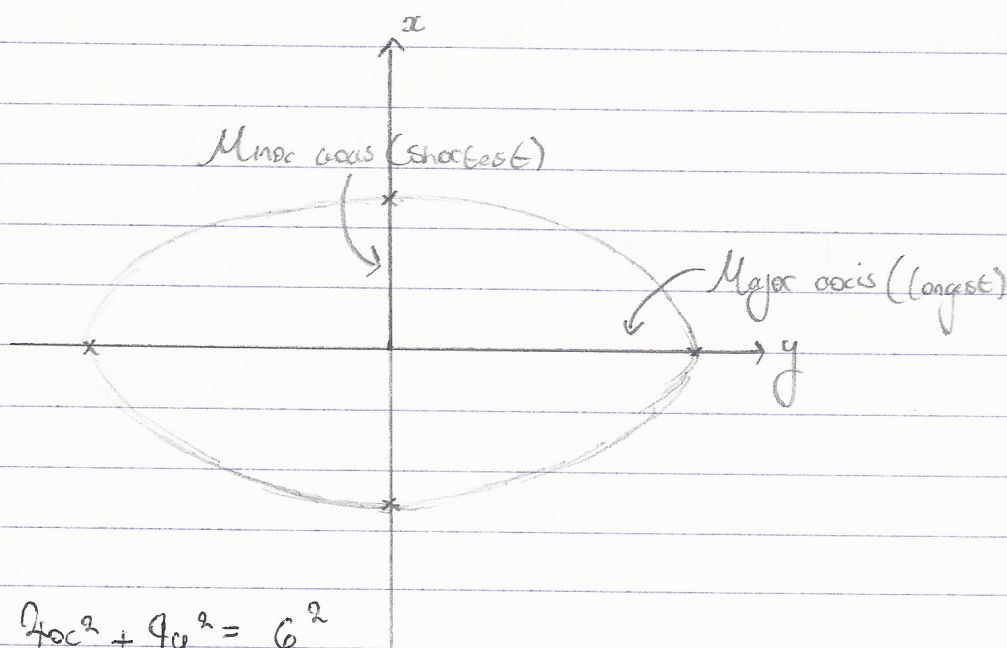 x
Minor axis (shortest)
Major axis (longest)
y
4x² + 9y² = 6²